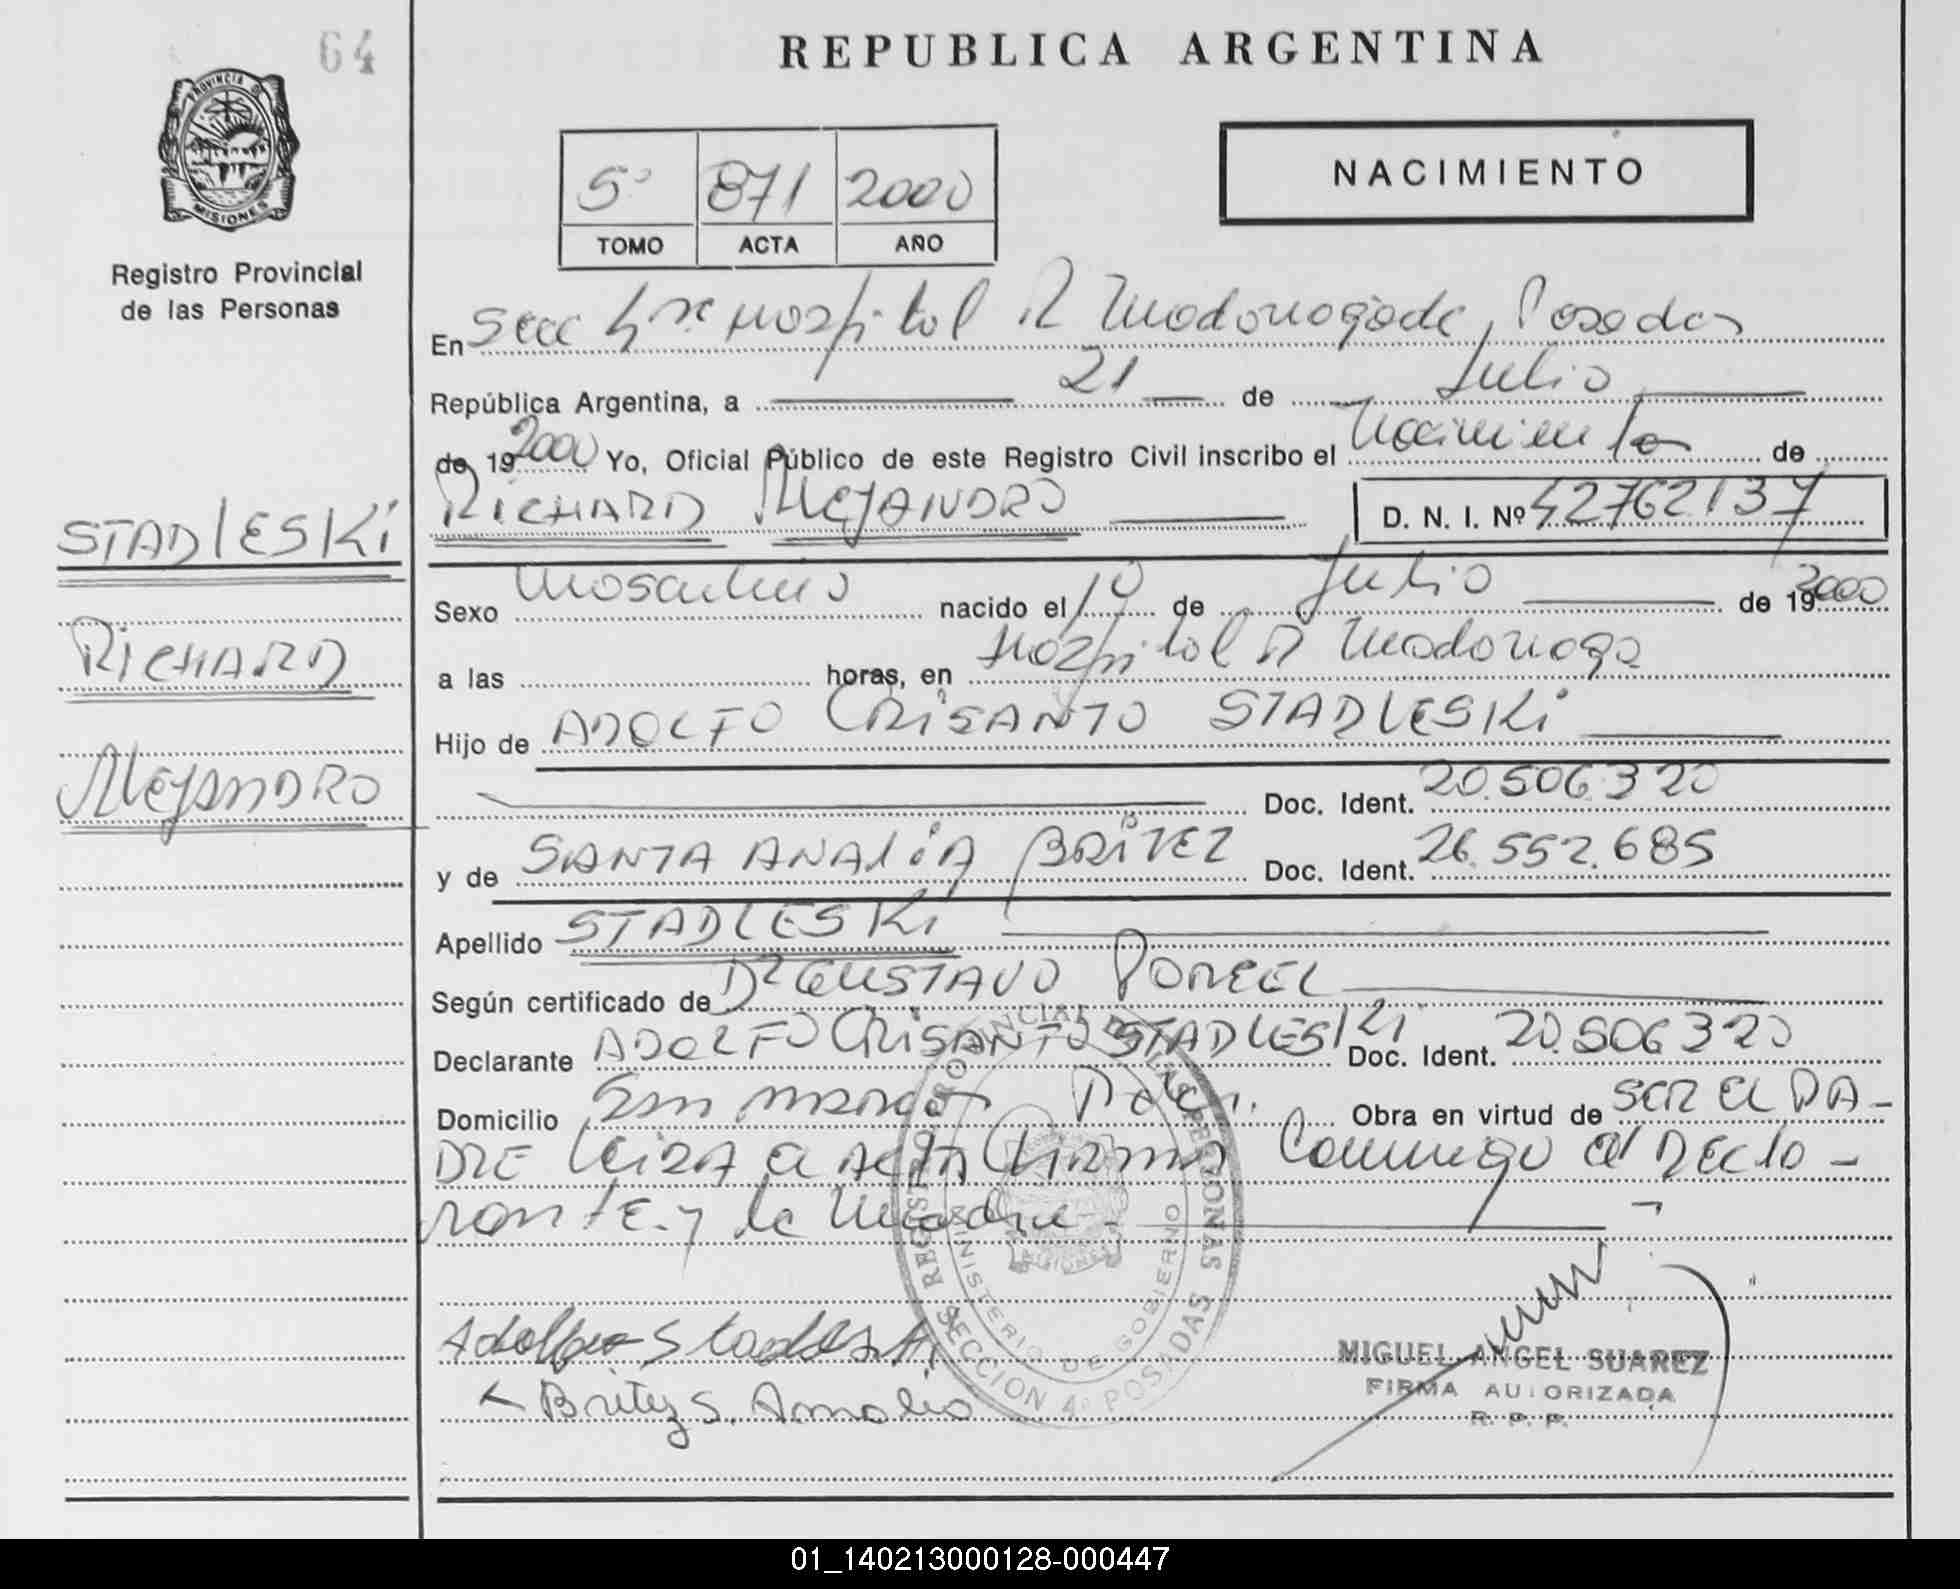 64
REPUBLICA ARGENTINA
PROVINCIA DE
MISIONES
Registro Provincial
de las Personas
5º 871 2000
TOMO ACTA AÑO
NACIMIENTO
En Secc 4ta Hospital R Madariaga de, Posadas
República Argentina, a 21 de Julio
de 19 2000 Yo, Oficial Público de este Registro Civil inscribo el Nacimiento de
RICHARD ALEJANDRO D. N. I. Nº 42762137
STADLESKI
RICHARD
ALEJANDRO
Sexo Masculino nacido el de Julio de 19 2000
a las horas, en Hospital R Madariaga
Hijo de ADOLFO CRISANTO STADLESKI
Doc. Ident. 20.506.320
y de SANTA ANALIA BRITEZ Doc. Ident. 26.552.685
Apellido STADLESKI
Según certificado de Dr GUSTAVO PORCEL
Declarante ADOLFO CRISANTO STADLESKI Doc. Ident. 20.506320
Domicilio Obra en virtud de SER EL PA-
DRE LEIDA el ACTA FIRMA Conmigo el DECLA-
RANTE y la Madre
REGISTRO PROVINCIAL DE LAS PERSONAS
MINISTERIO DE GOBIERNO
SECCION 4º POSADAS
Adolfo Stadleski
Britez S. Analia
MIGUEL ANGEL SUAREZ
FIRMA AUTORIZADA
R. P. P.
01_140213000128-000447